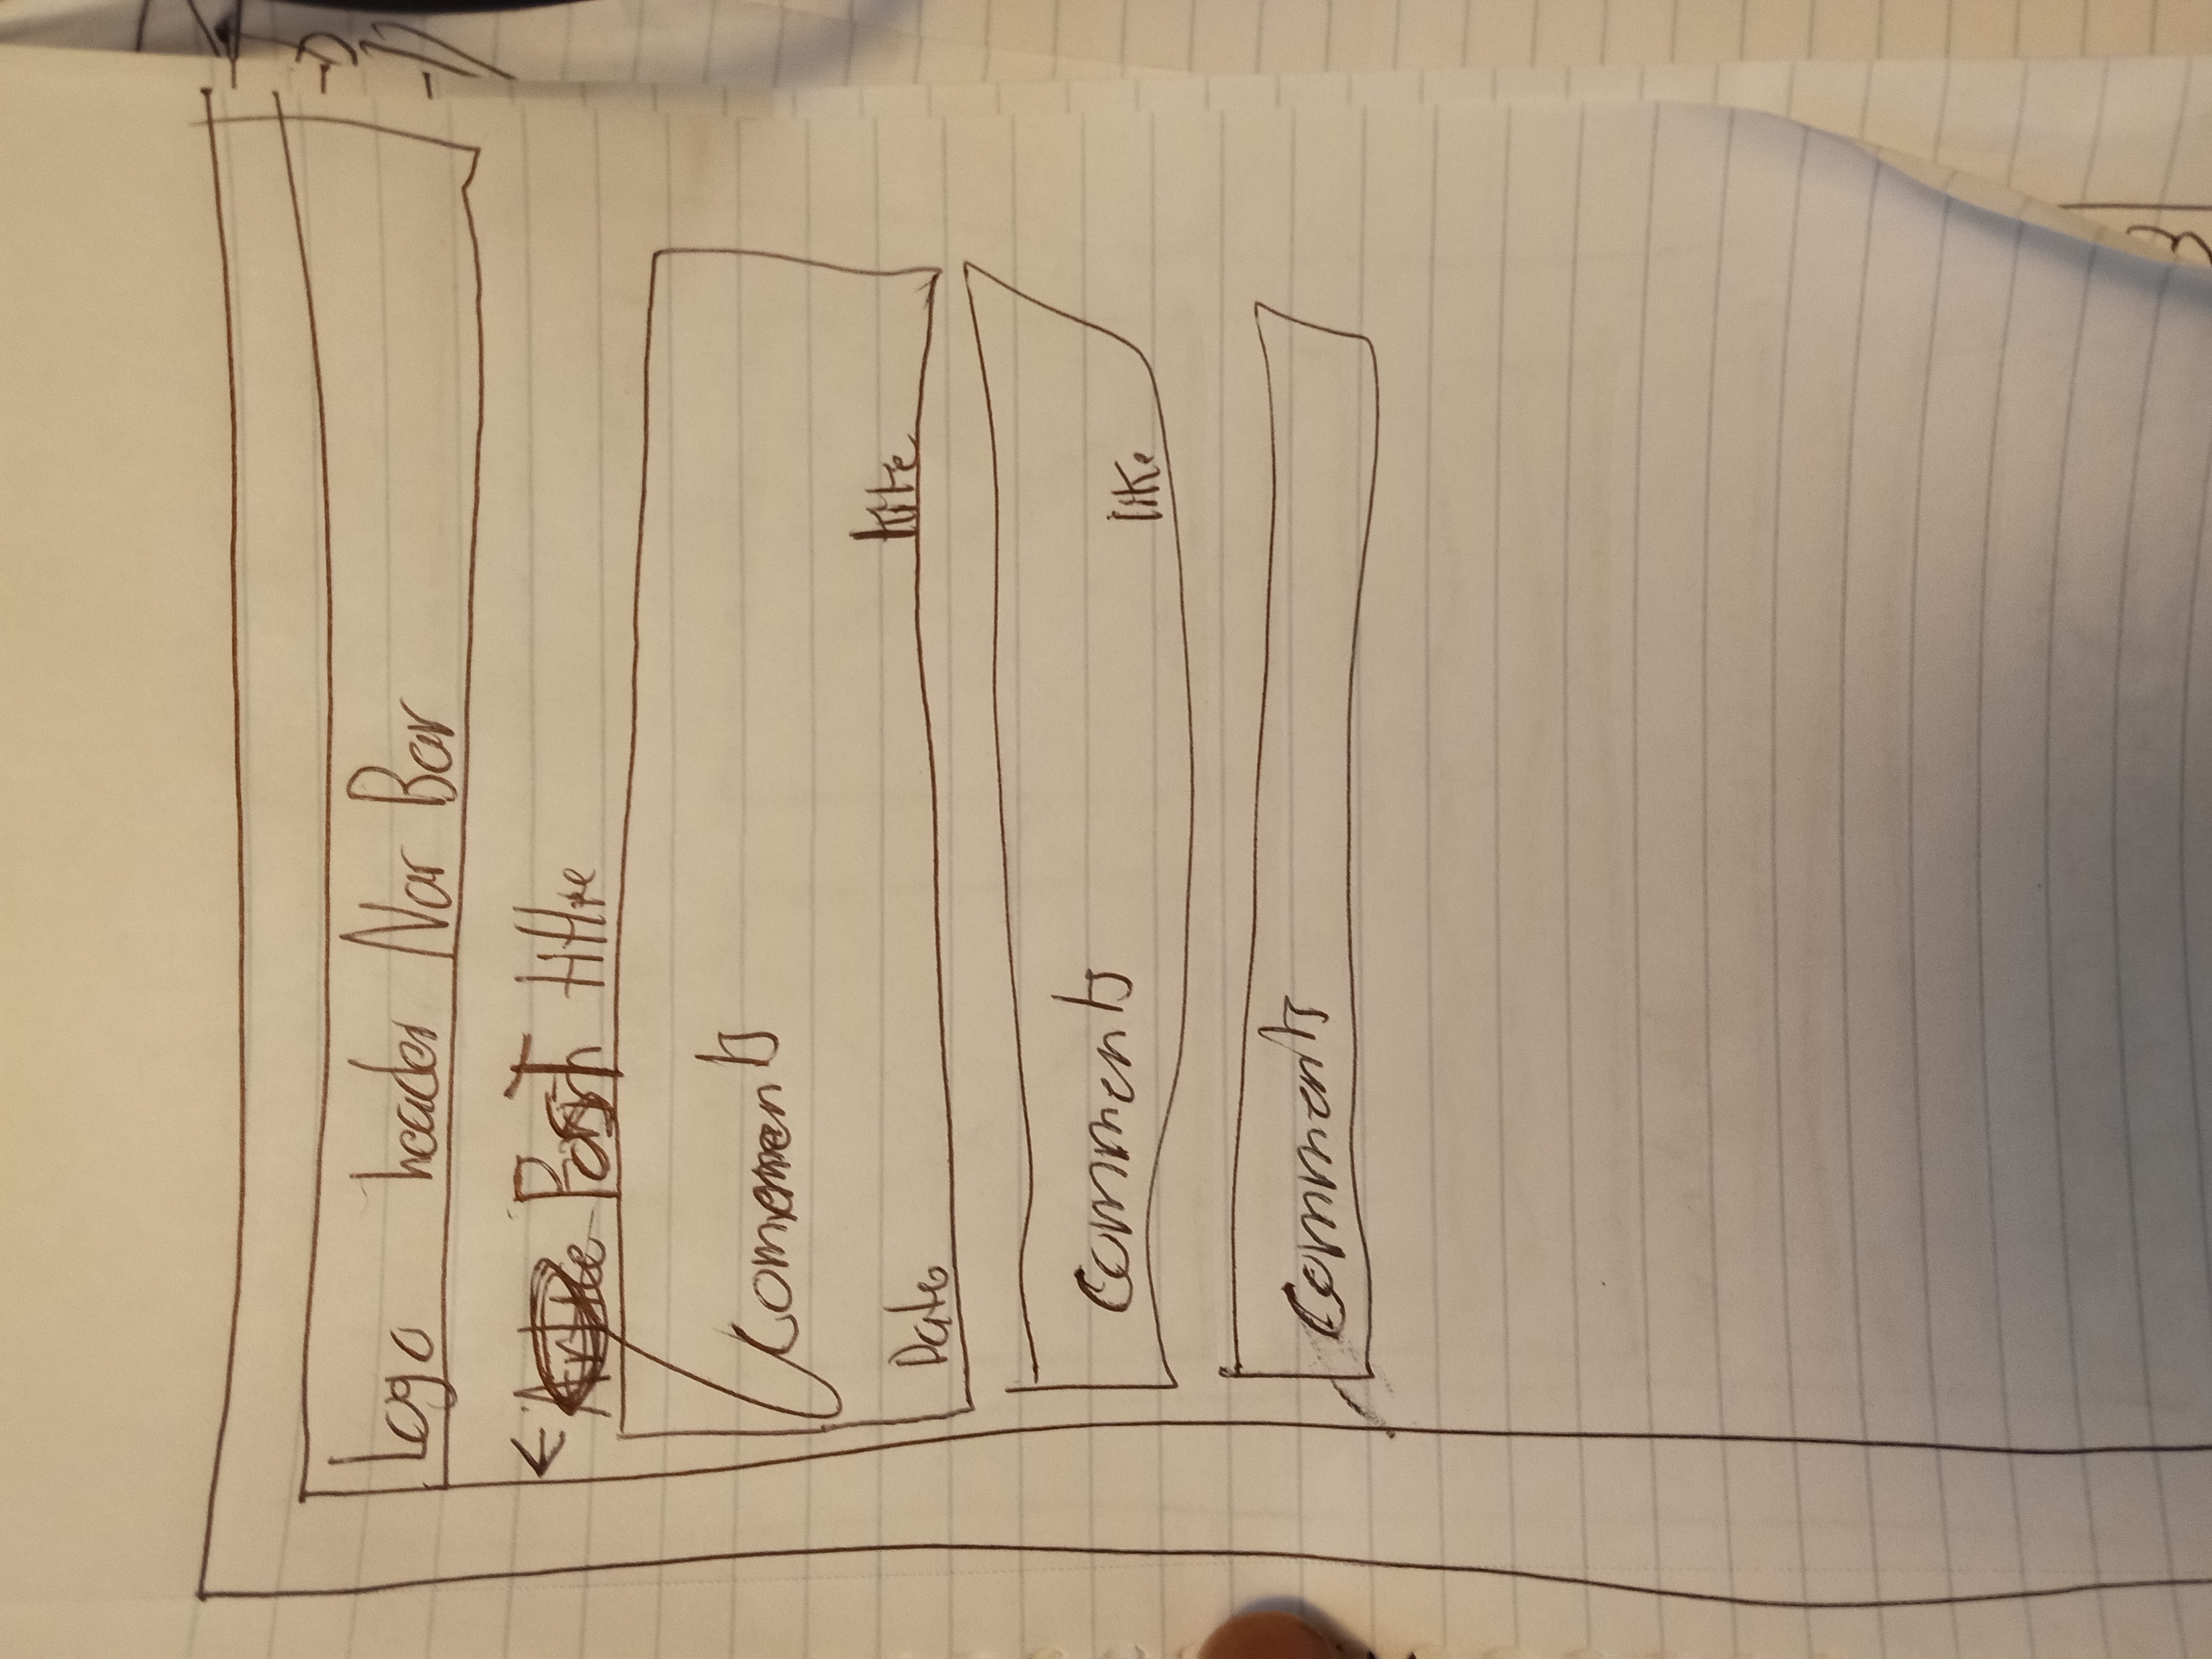 Logo header Nav Bar
← Post tittre
Comements
Date like
Comments
like
Comments